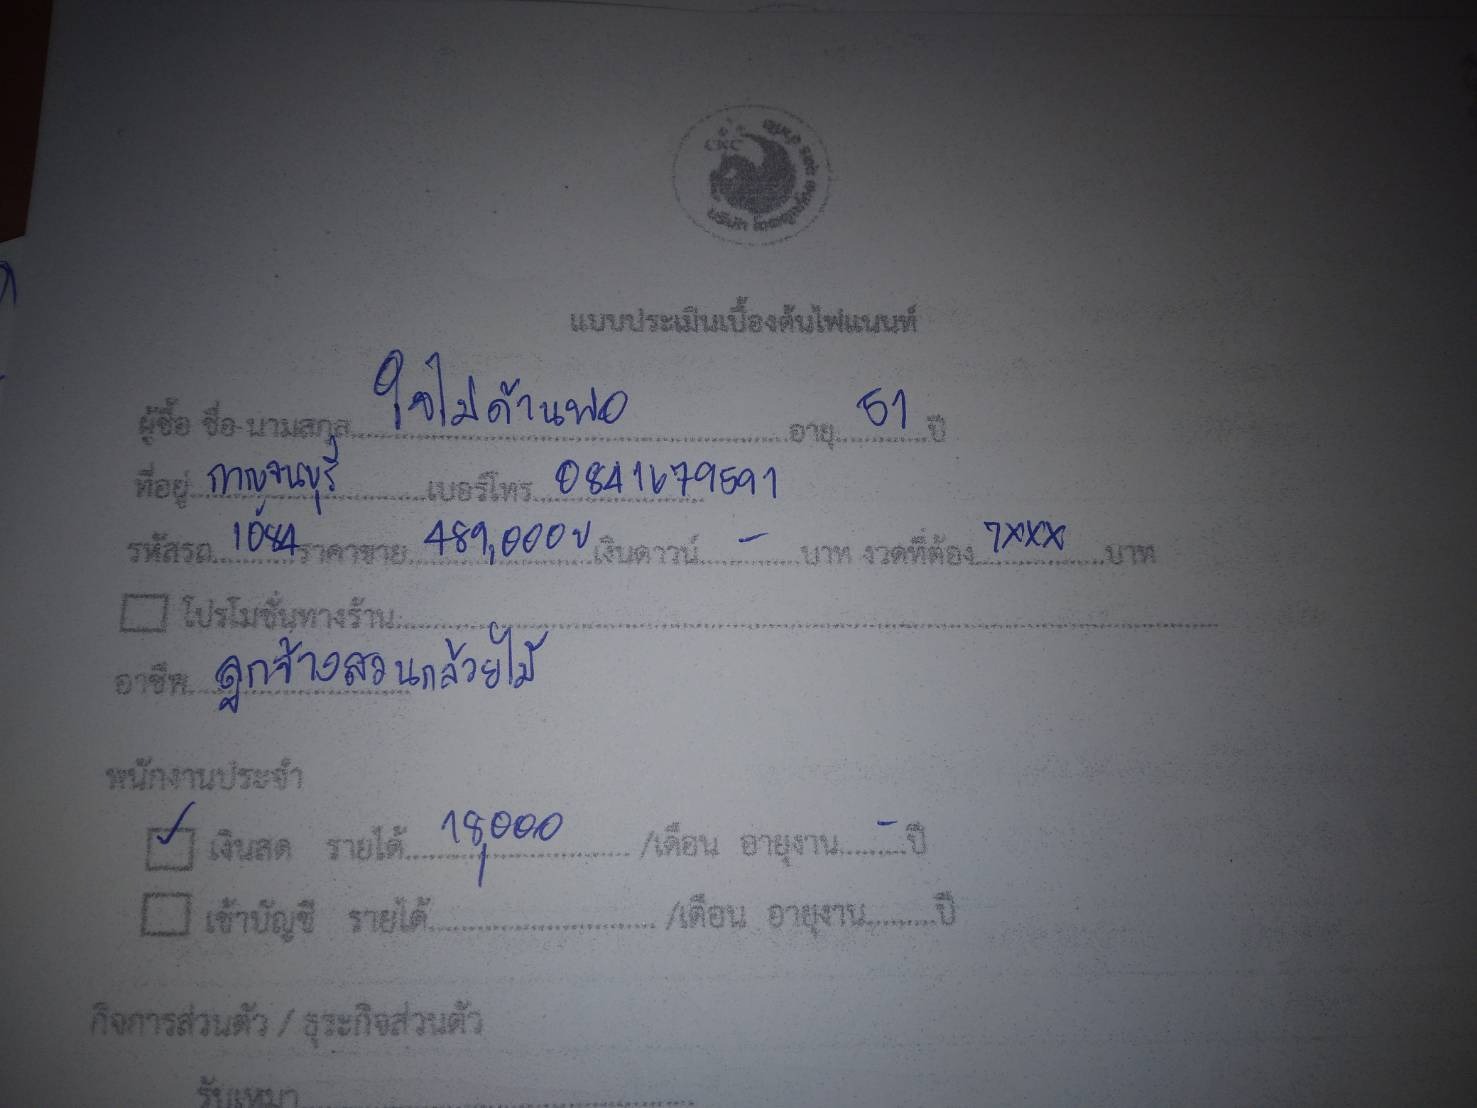 CKC
บริษัท
แบบประเมินเบื้องต้นไฟแนนท์
ผู้ซื้อ ชื่อ-นามสกุล ใจไม่ด้านพอ อายุ 51 ปี
ที่อยู่ กาญจนบุรี เบอร์โทร 0841679591
รหัสรถ 1084 ราคาขาย 489,000 เงินดาวน์ - บาท งวดที่ต้อง 7xxx บาท
โปรโมชั่นทางร้าน
อาชีพ ลูกจ้างสวนกล้วยไม้
พนักงานประจำ
เงินสด รายได้ 18,000 /เดือน อายุงาน - ปี
เข้าบัญชี รายได้ /เดือน อายุงาน ปี
กิจการส่วนตัว / ธุระกิจส่วนตัว
รับเหมา